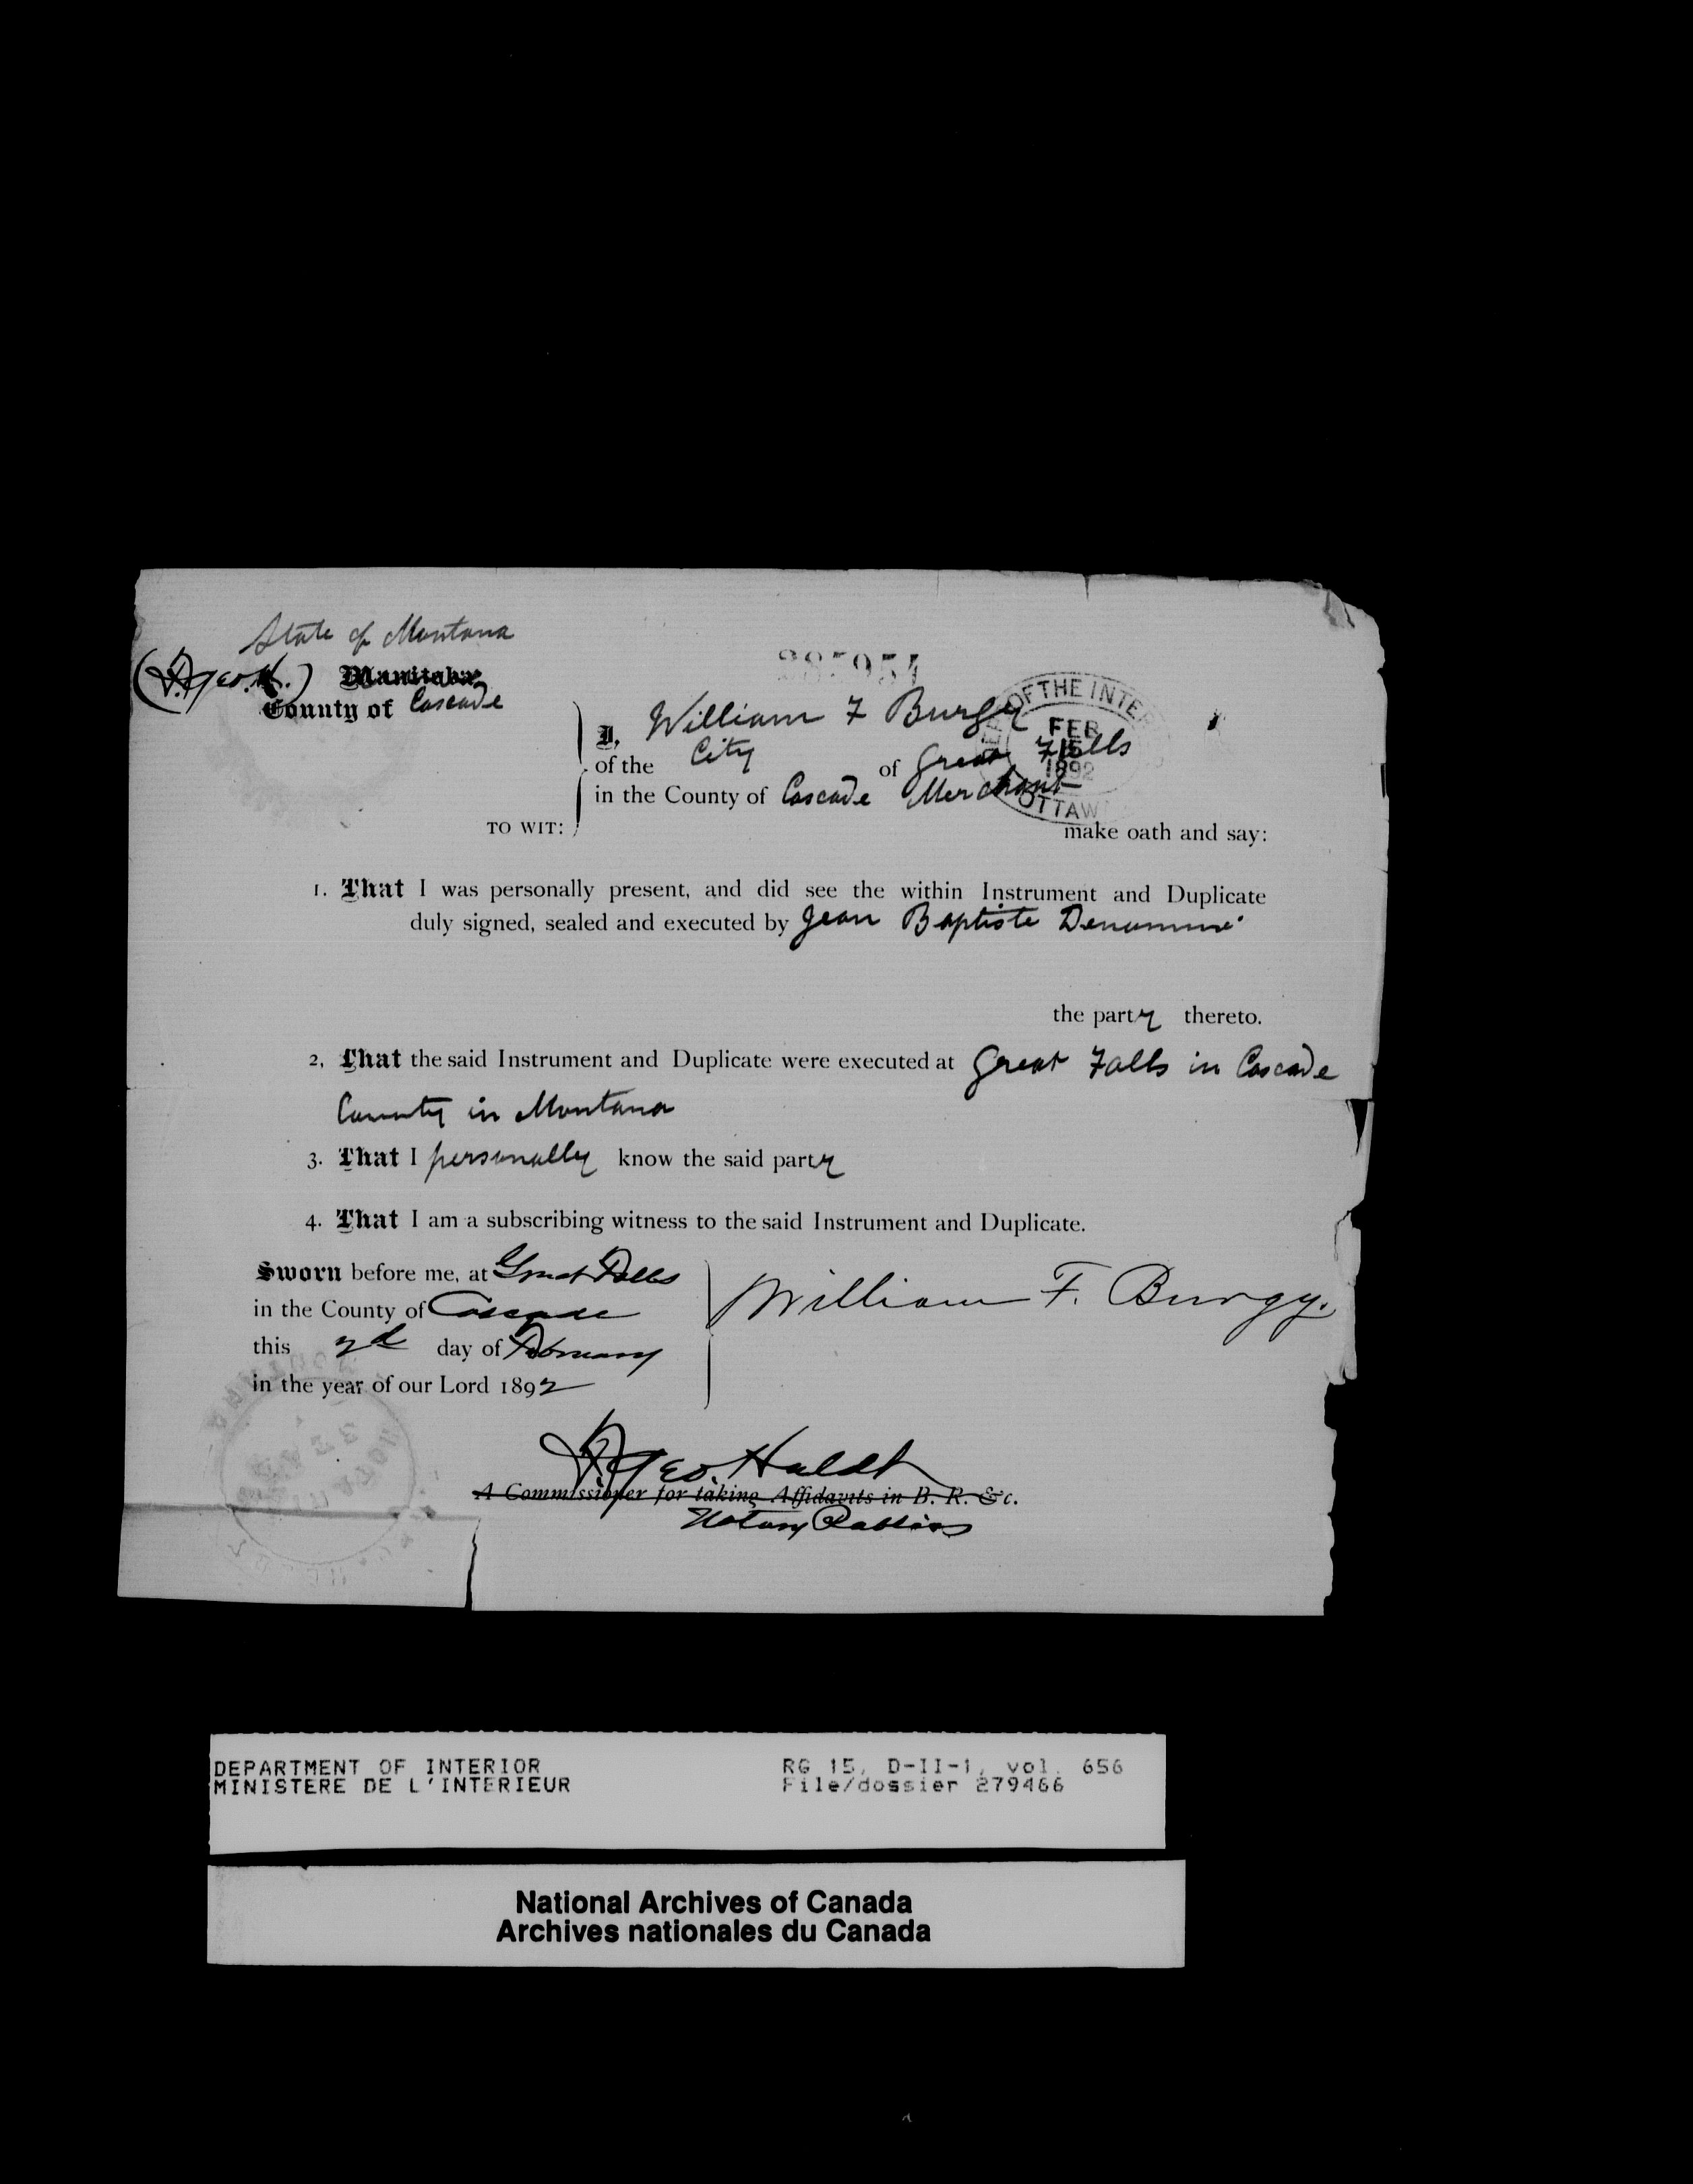 State of Montana
Manitoba
County of Cascade
I, William F Burgy
of the City of Great Falls
in the County of Cascade Merchant
TO WIT:
make oath and say:
OF THE INTER
FEB
15
1892
OTTAW
1. That I was personally present, and did see the within Instrument and Duplicate
duly signed, sealed and executed by Jean Baptiste Denomme
the party thereto.
2, That the said Instrument and Duplicate were executed at Great Falls in Cascade
County in Montana
3. That I personally know the said party
4. That I am a subscribing witness to the said Instrument and Duplicate.
Sworn before me, at Great Falls
in the County of Cascade
this 2d day of February
in the year of our Lord 1892
William F. Burgy.
Geo. Haldt
A Commissioner for taking Affidavits in B. R. &c.
Notary Public
DEPARTMENT OF INTERIOR RG 15, D-II-1, vol. 656
MINISTERE DE L'INTERIEUR File/dossier 279466
National Archives of Canada
Archives nationales du Canada